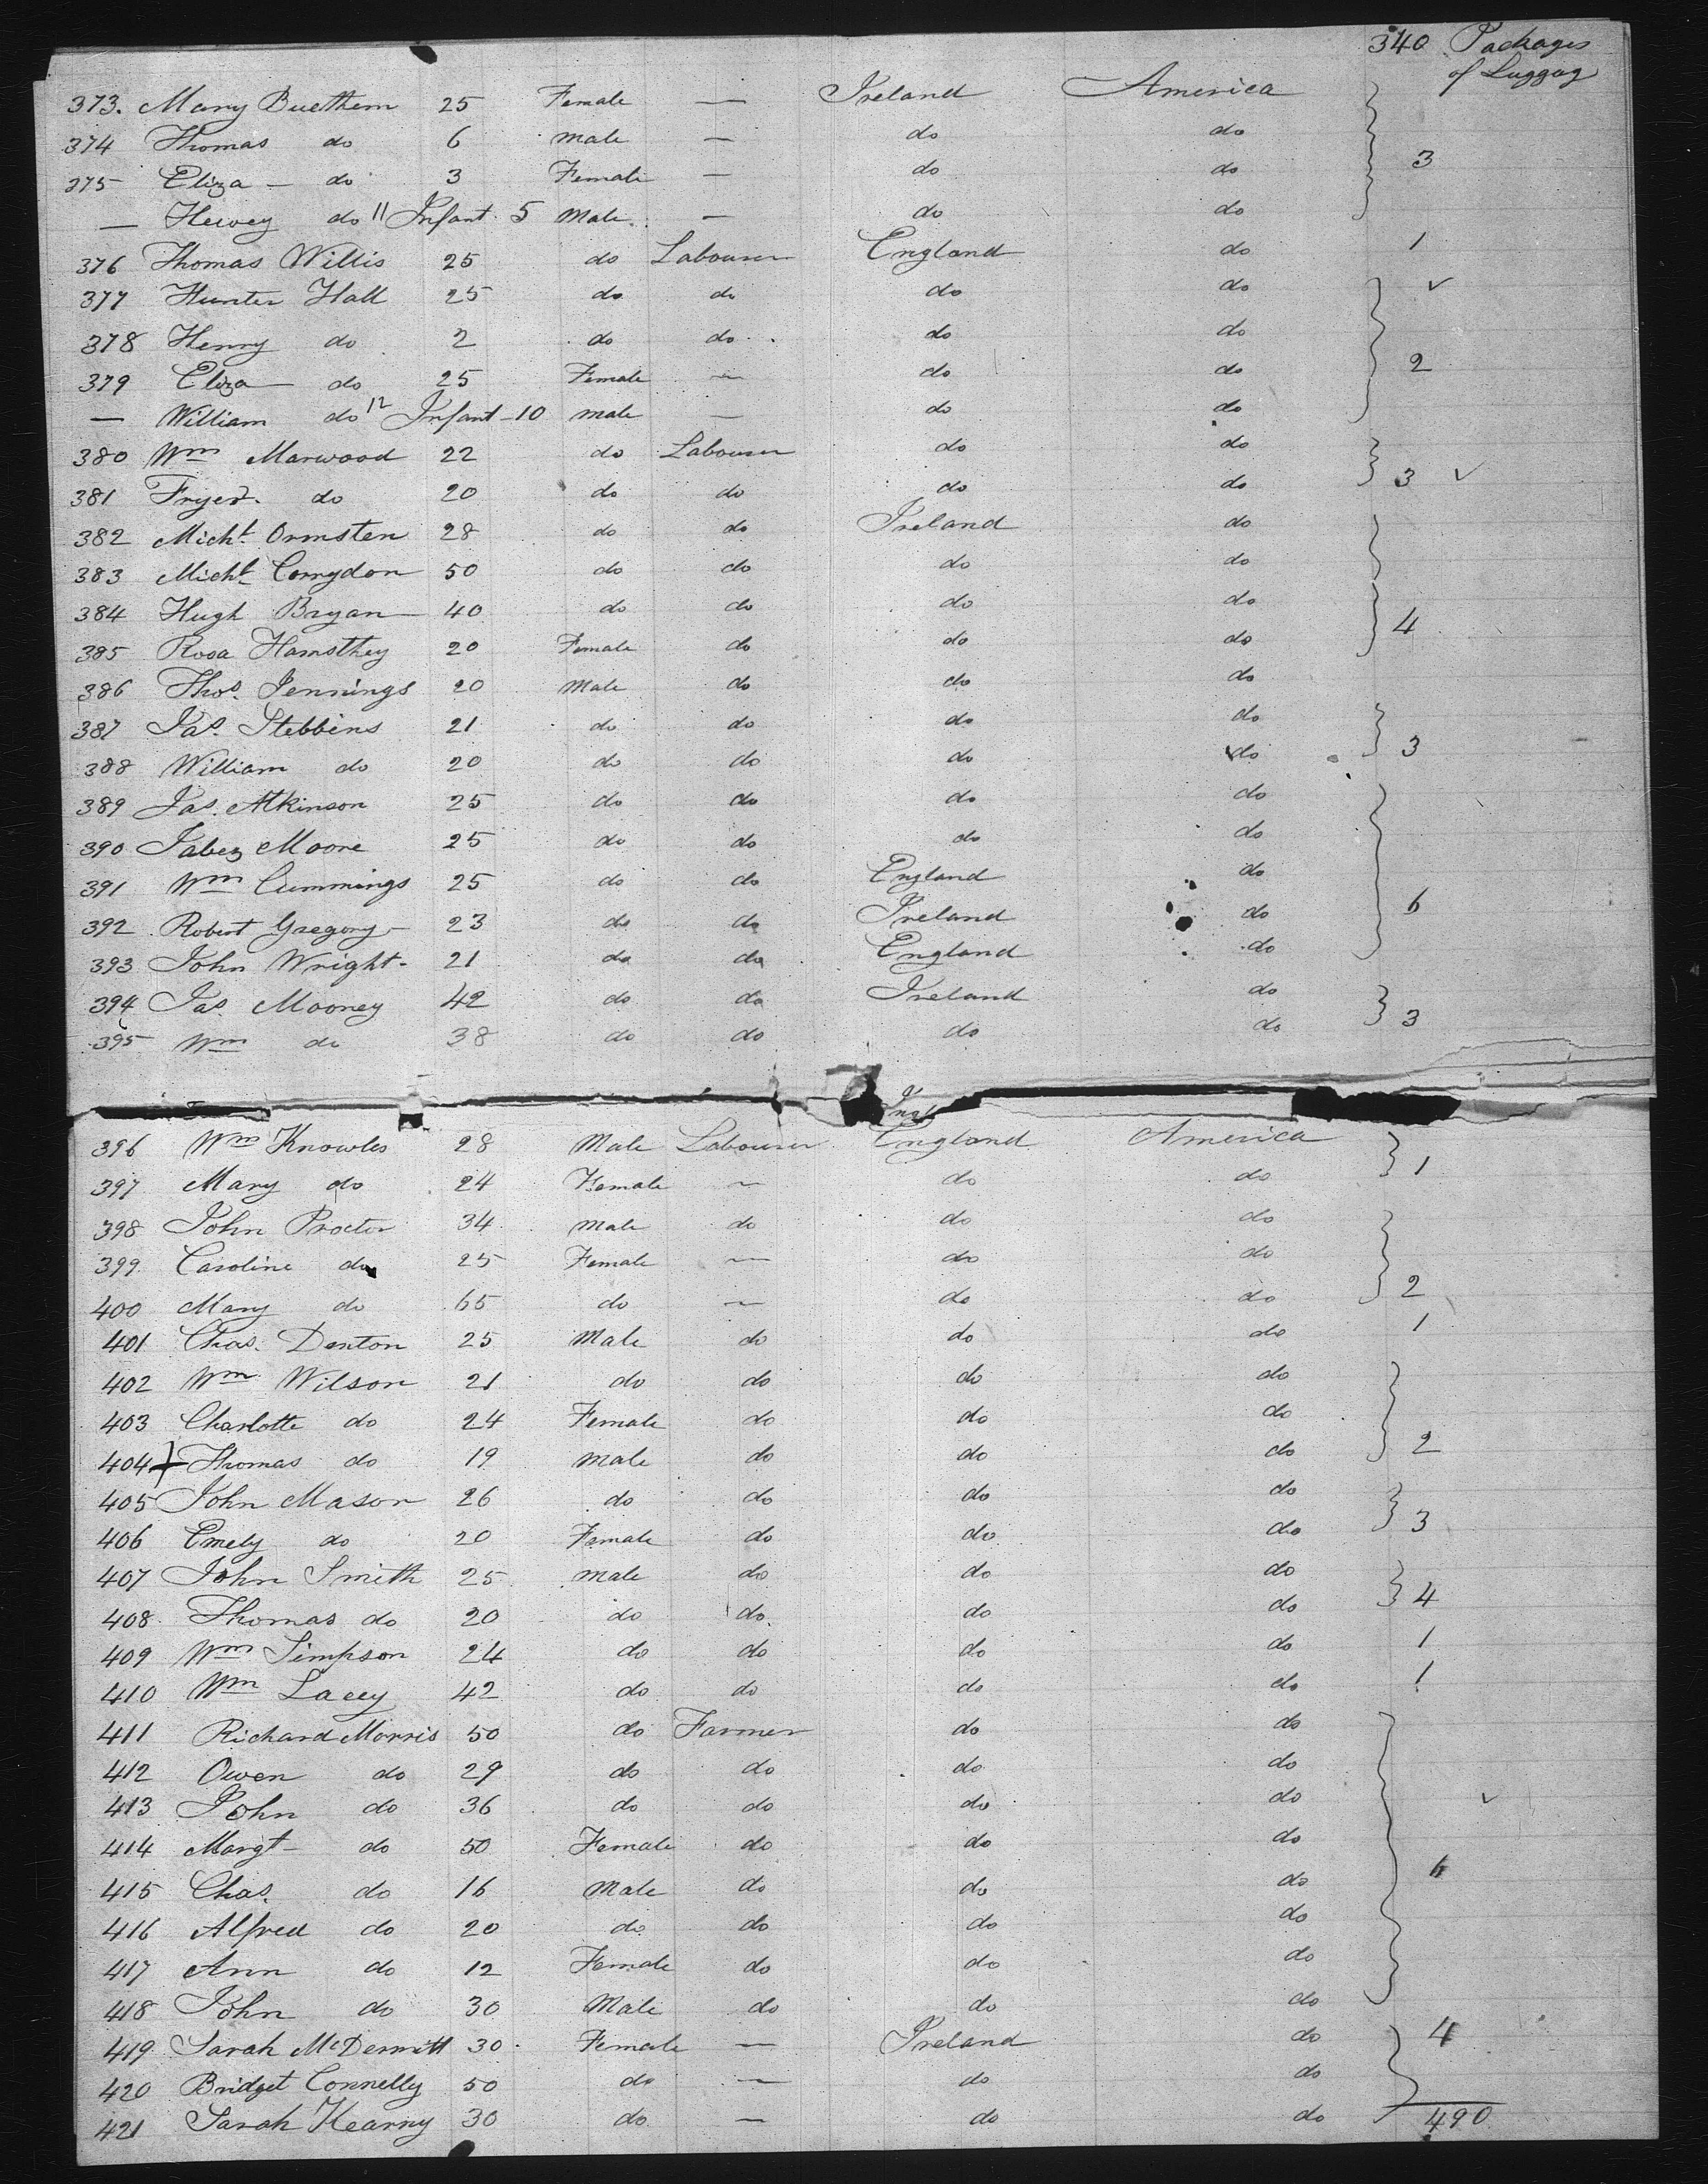 340 Packages
of Luggag
373. Mary Buethem 25 Female — Ireland America
374 Thomas do 6 Male — do do
375 Eliza — do 3 Female — do do 3
— do 11 Infant 5 Male — do do
376 Thomas Willis 25 do Labourer England do 1
377 Hunter Hall 25 do do do do ✓
378 Henry do 2 do do do do
379 Eliza do 25 Female — do do 2
— William do 12 Infant - 10 Male — do do
380 Wm Marwood 22 do Labourer do do
381 do 20 do do do do 3 ✓
382 Michl Ormsten 28 do do Ireland do
383 Michl Corrydon 50 do do do do
384 Hugh Bryan 40 do do do do 4
385 Rosa Hamsthey 20 Female do do do
386 Thos. Jennings 20 Male do do do
387 Jas. Stebbins 21 do do do do
388 William do 20 do do do do 3
389 Jas. Atkinson 25 do do do do
390 Jabez Moore 25 do do do do
391 Wm Cummings 25 do do England do
392 Robert Gregory 23 do do Ireland do 6
393 John Wright 21 do do England do
394 Jas. Mooney 42 do do Ireland do
395 Wm do 38 do do do do 3
396 Wm Knowles 28 Male Labourer England America 1
397 Mary do 24 Female — do do
398 John Procter 34 Male do do do
399 Caroline do 25 Female — do do
400 Mary do 65 do — do do 2
401 Chas. Denton 25 Male do do do 1
402 Wm Wilson 21 do do do do
403 Charlotte do 24 Female do do do
404 + Thomas do 19 Male do do do 2
405 John Mason 26 do do do do
406 Emely do 20 Female do do do 3
407 John Smith 25 Male do do do
408 Thomas do 20 do do do do 4
409 Wm Simpson 24 do do do do 1
410 Wm Lacey 42 do do do do 1
411 Richard Morris 50 do Farmer do do
412 Owen do 29 do do do do
413 John do 36 do do do do ✓
414 Margt do 50 Female do do do
415 Chas. do 16 Male do do do 6
416 Alfred do 20 do do do do
417 Ann do 12 Female do do do
418 John do 30 Male do do do
419 Sarah McDermitt 30 Female — Ireland do 4
420 Bridget Connelly 50 do — do do
421 Sarah Kearny 30 do — do do 490